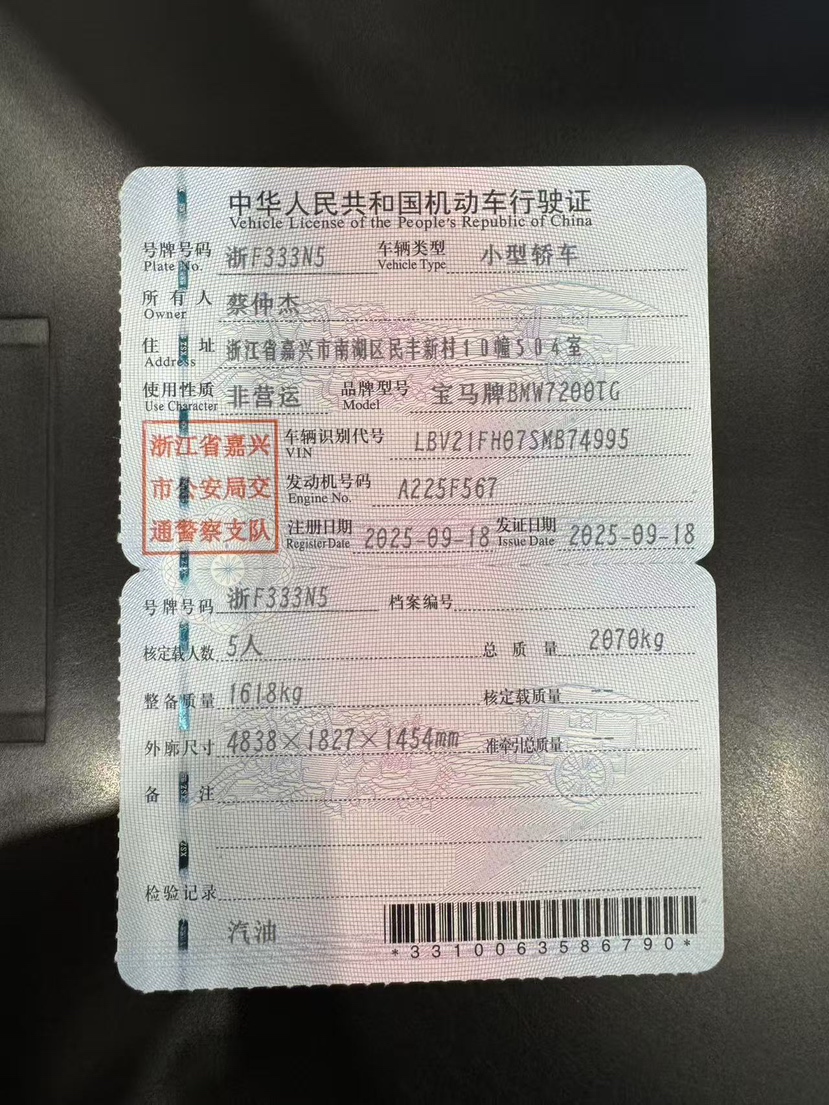 中华人民共和国机动车行驶证
Vehicle License of the People's Republic of China
号牌号码 浙F333N5 车辆类型 小型轿车
Plate No. Vehicle Type
所有人 蔡仲杰
Owner
住址 浙江省嘉兴市南湖区民丰新村10幢504室
Address
使用性质 非营运 品牌型号 宝马牌BMW7200TG
Use Character Model
浙江省嘉兴
市公安局交
通警察支队
车辆识别代号 LBV21FH07SMB74995
VIN
发动机号码 A225F567
Engine No.
注册日期 2025-09-18 发证日期 2025-09-18
Register Date Issue Date
号牌号码 浙F333N5 档案编号
核定载人数 5人 总质量 2070kg
整备质量 1618kg 核定载质量 --
外廓尺寸 4838×1827×1454mm 准牵引总质量 --
备注
检验记录
汽油
*3310063586790*